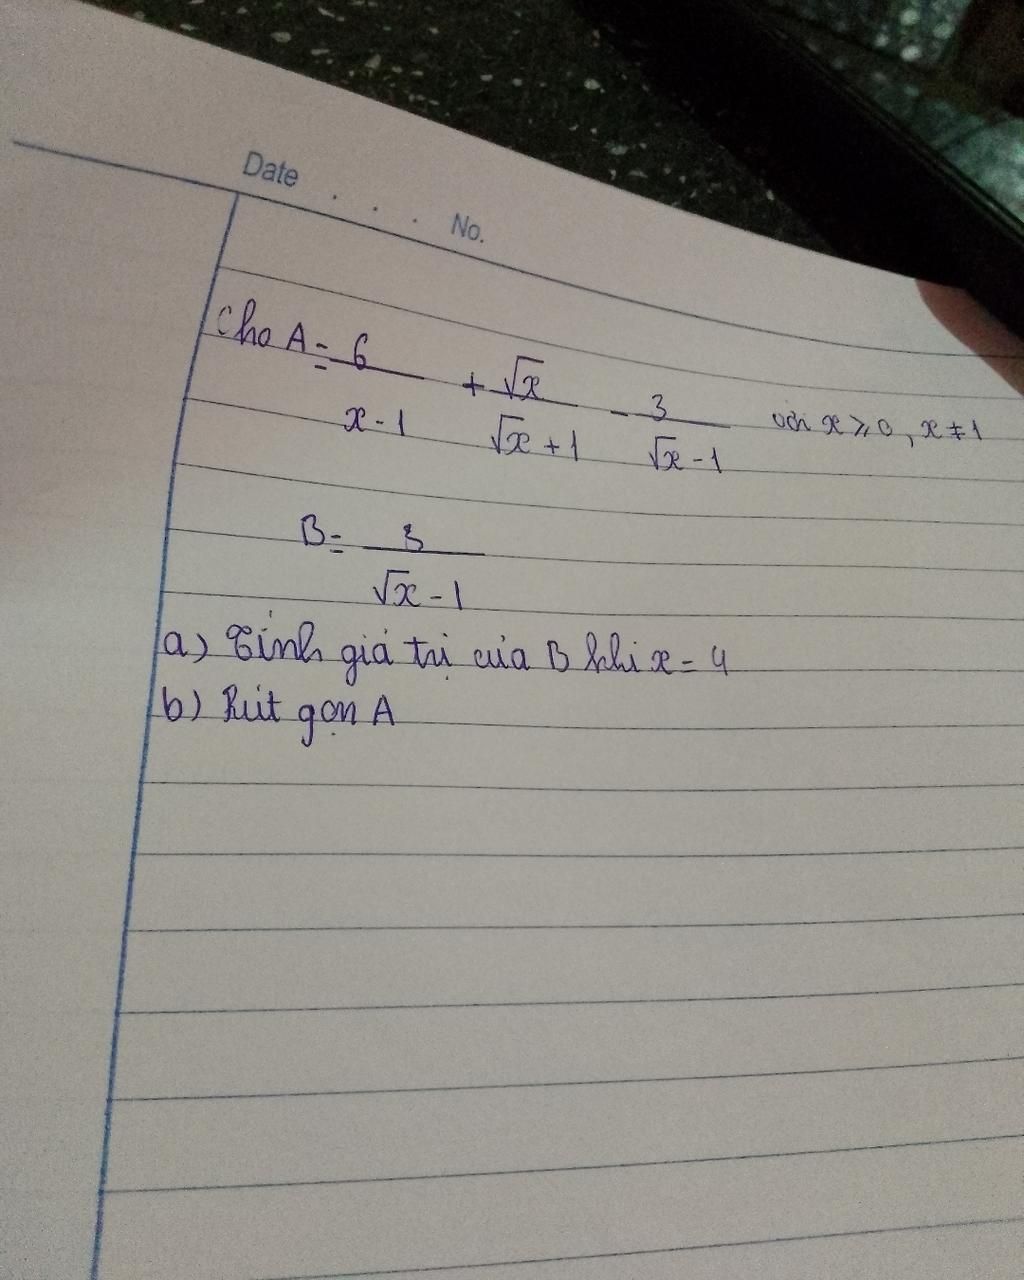 Date . . . . No.
Cho A = 6/(x - 1) + √x/(√x + 1) - 3/(√x - 1) với x ⩾ 0, x ≠ 1
B = 3/(√x - 1)
a) Tính giá trị của B khi x = 4
b) Rút gọn A